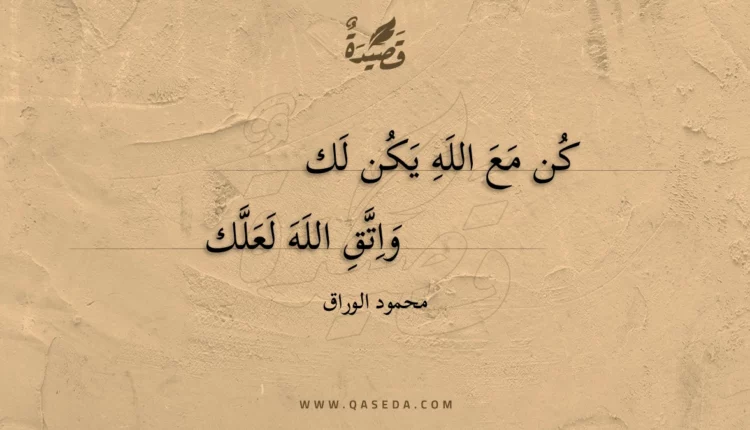 قَصِيدَةٌ
كُن مَعَ اللَهِ يَكُن لَك
وَاِتَّقِ اللَهَ لَعَلَّك
محمود الوراق
WWW.QASEDA.COM